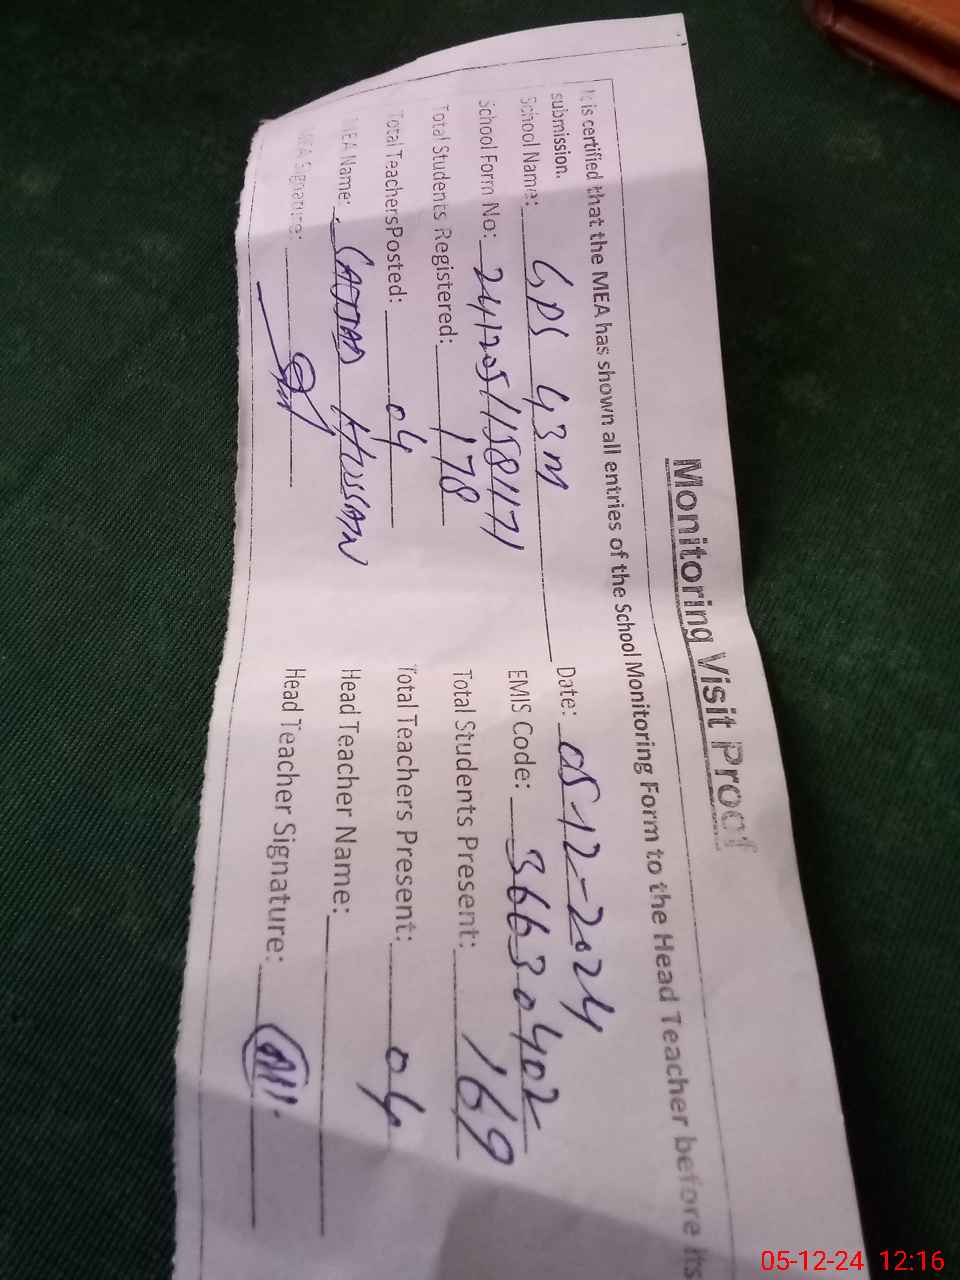 Monitoring Visit Proof
It is certified that the MEA has shown all entries of the School Monitoring Form to the Head Teacher before its
submission.
School Name: GPS 43 M Date: 05-12-2024
School Form No: EMIS Code: 36630402
Total Students Registered: 178 Total Students Present: 169
Total TeachersPosted: 04 Total Teachers Present: 04
MEA Name: SAJJAD HUSSAN Head Teacher Name:
MEA Signature: Head Teacher Signature:
05-12-24 12:16